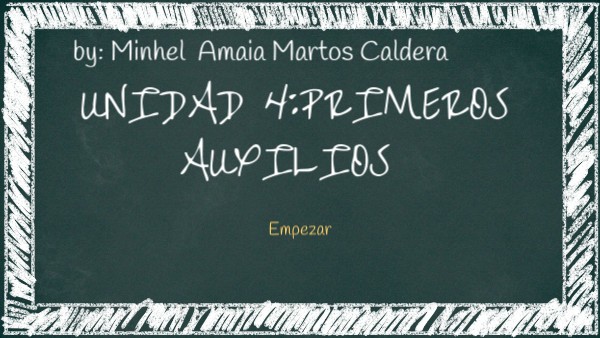 by: Minhel Amaia Martos Caldera
UNIDAD 4:PRIMEROS
AUXILIOS
Empezar